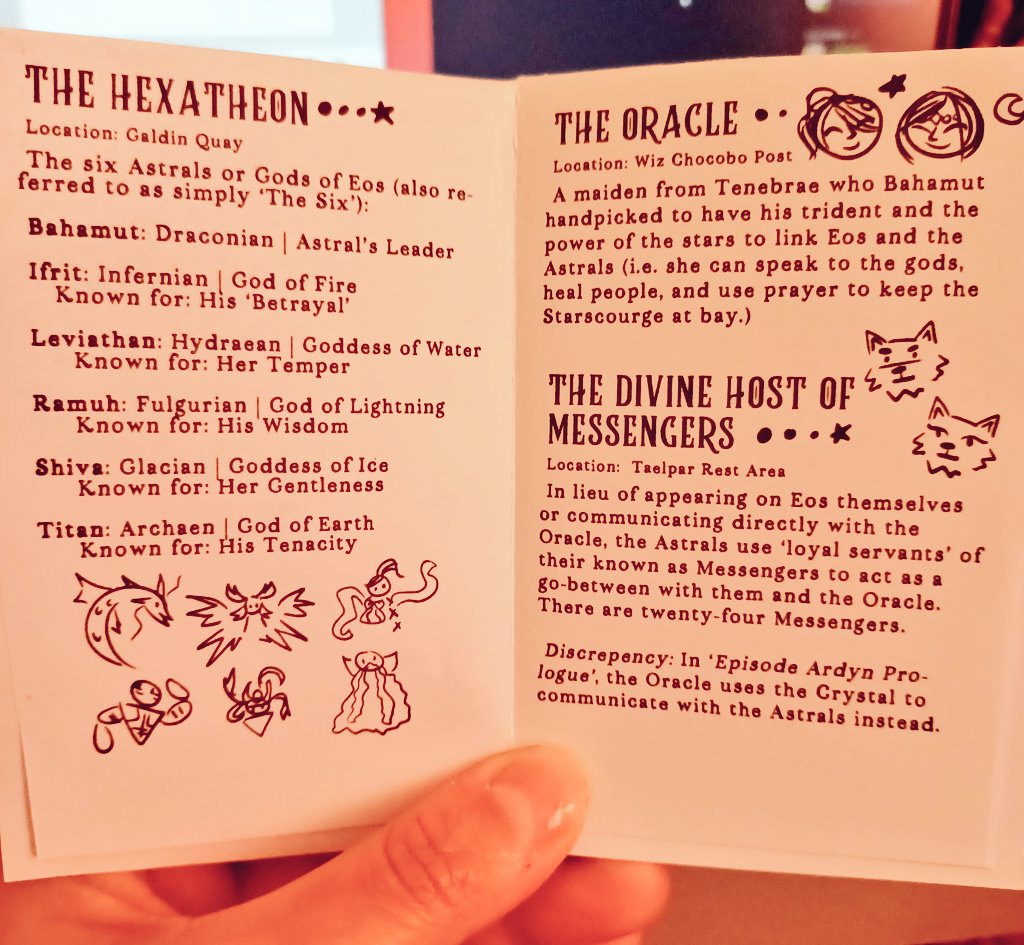 THE HEXATHEON
Location: Galdin Quay
The six Astrals or Gods of Eos (also re-
ferred to as simply 'The Six'):
Bahamut: Draconian | Astral's Leader
Ifrit: Infernian | God of Fire
Known for: His 'Betrayal'
Leviathan: Hydraean | Goddess of Water
Known for: Her Temper
Ramuh: Fulgurian | God of Lightning
Known for: His Wisdom
Shiva: Glacian | Goddess of Ice
Known for: Her Gentleness
Titan: Archaen | God of Earth
Known for: His Tenacity
THE ORACLE
Location: Wiz Chocobo Post
A maiden from Tenebrae who Bahamut
handpicked to have his trident and the
power of the stars to link Eos and the
Astrals (i.e. she can speak to the gods,
heal people, and use prayer to keep the
Starscourge at bay.)
THE DIVINE HOST OF
MESSENGERS
Location: Taelpar Rest Area
In lieu of appearing on Eos themselves
or communicating directly with the
Oracle, the Astrals use 'loyal servants' of
their known as Messengers to act as a
go-between with them and the Oracle.
There are twenty-four Messengers.
Discrepency: In 'Episode Ardyn Pro-
logue', the Oracle uses the Crystal to
communicate with the Astrals instead.